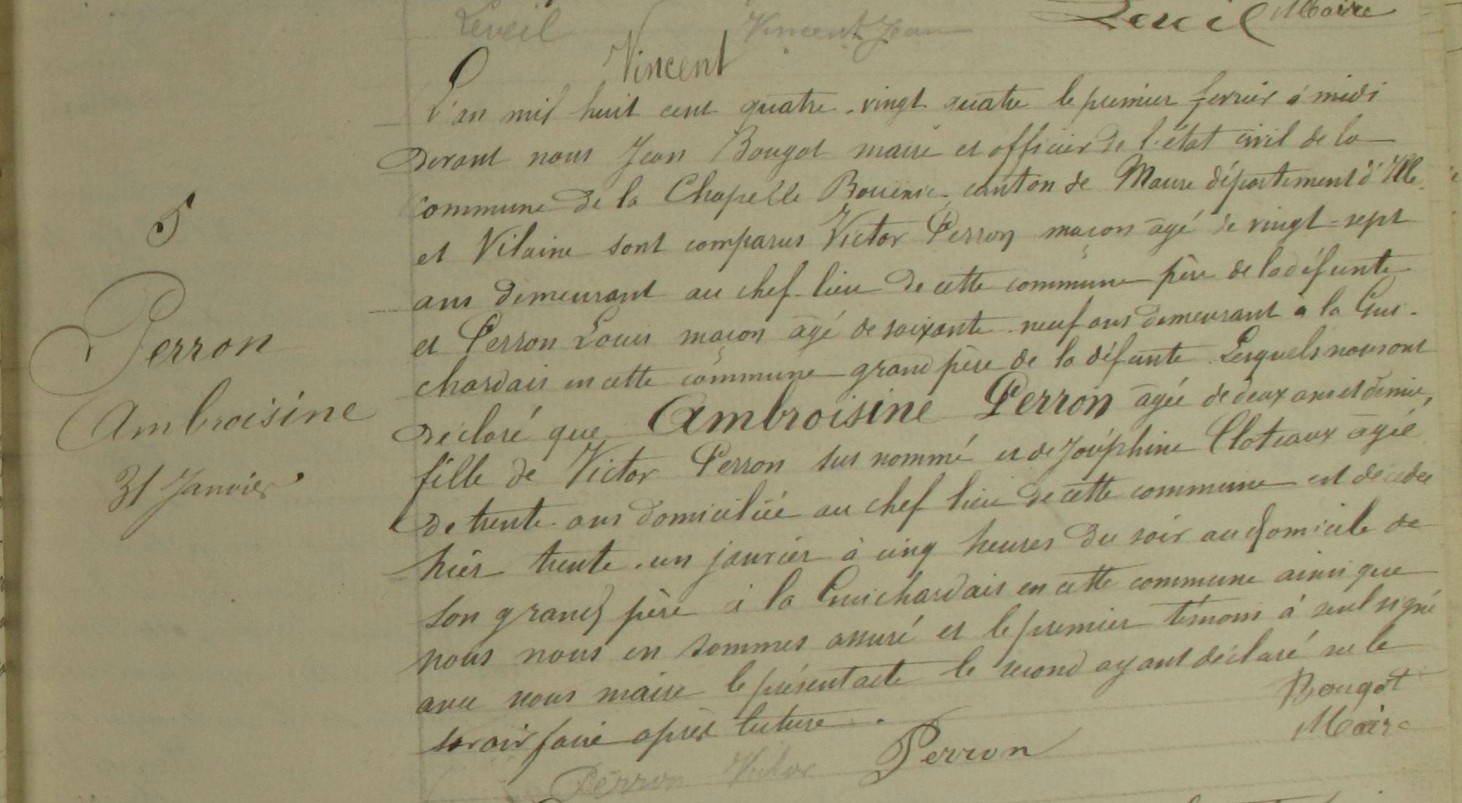 Leveil Vincent Jean Leveil Maire
Vincent
L'an mil huit cent quatre-vingt quatre le premier fevrier à midi
Devant nous Jean Bougot maire et officier de l'état civil de la
commune de la Chapelle Bouëxic canton de Maure département d'Ille
et Vilaine sont comparus Victor Perron maçon agé de vingt-sept
ans demeurant au chef-lieu de cette commune père de la défunte
et Perron Louis maçon agé de soixante-neuf ans demeurant à la Gui-
chardais en cette commune grand père de la défunte Lesquels nous ont
déclaré que Ambroisine Perron agée de deux ans et demie,
fille de Victor Perron sus nommé et de Joséphine Cloteaux agée
de trente ans domiciliée au chef lieu de cette commune est décédée
hier trente-un janvier à cinq heures du soir au domicile de
son grand père à la Guichardais en cette commune ainsi que
nous nous en sommes assuré et le premier témoin à seul signé
avec nous maire le présent acte le second ayant déclaré ne le
savoir faire après lecture.
Perron Victor Perron Bougot
Maire
5
Perron
Ambroisine
31 Janvier